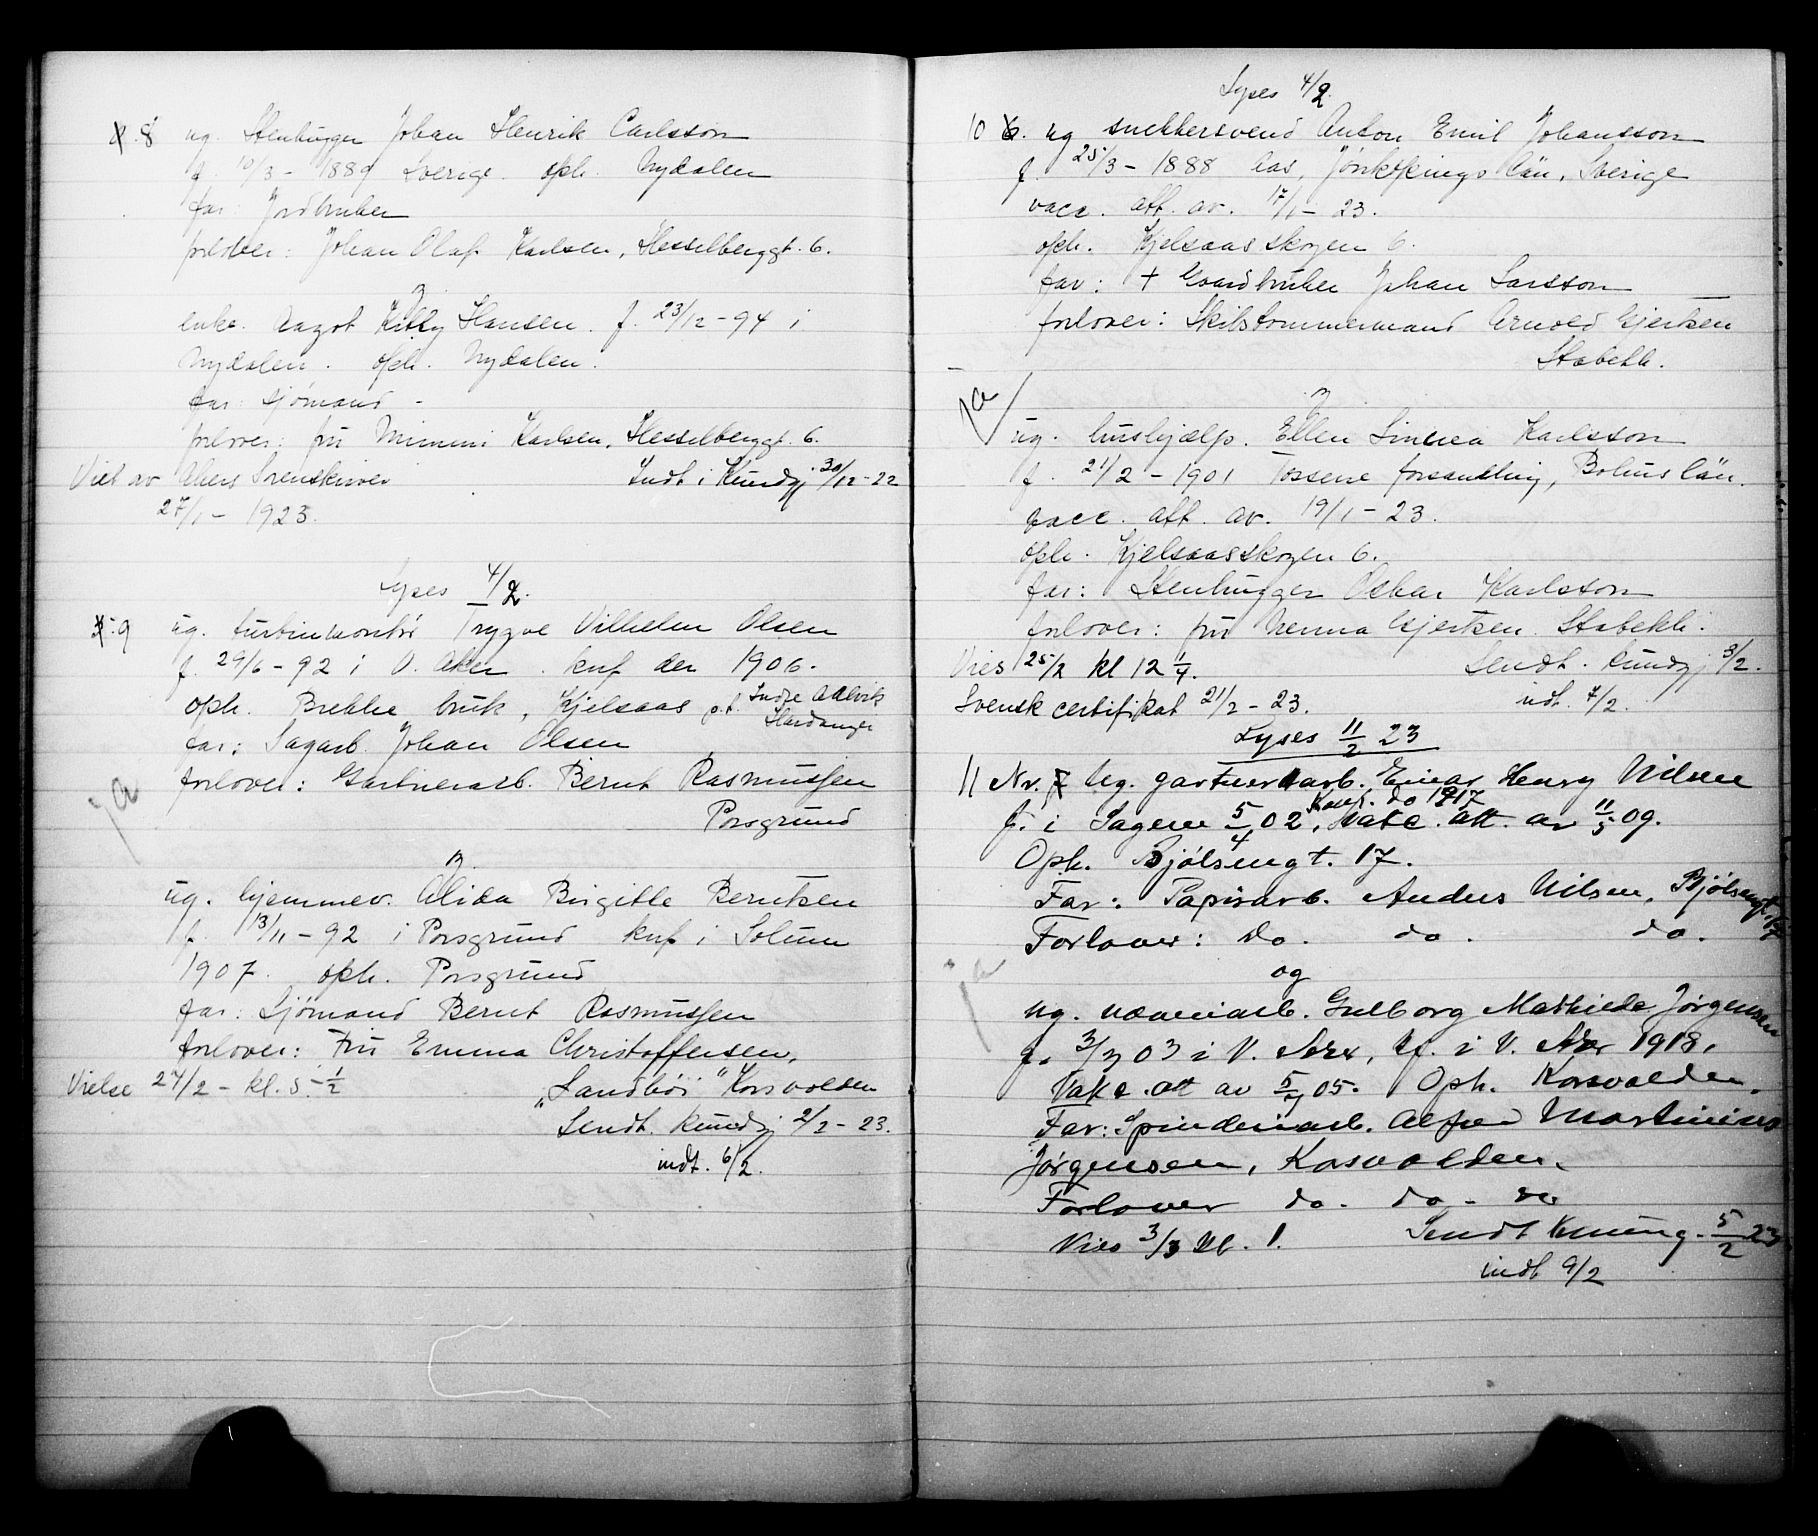 8 ug. Stenhugger Johan Henrik Carlsson
f. 10/3 - 1889 Sverige. oph. Nydalen
far: Jordbruker
forlover: Johan Olaf Karlsen, Hesselberggt. 6.
og
enke. Aagot Kitty Hansen. f. 23/12 - 94 i
Nydalen. oph. Nydalen.
far: Sjømand -
forlover: fru Mimmi Karlsen, Hesselberggt. 6.
Viet av Akers Sorenskriver Sendt i Kundgj 30/12 - 22
27/1 - 1923.
Lyses 4/2.
9 ug. turbinmontør Trygve Vilhelm Olsen
f. 29/6 - 92 i V. Aker. knf der 1906.
oph. Brekke bruk, Kjelsaas p.t. Indre Aalvik
Hardanger
far: Sagarb. Johan Olsen
forlover: Gartnerarb. Bernt Rasmussen
Porsgrund
ja
og
ug. hjemmev. Alida Birgitte Berntsen
f. 13/11 - 92 i Porsgrund knf i Solum
1907. oph. Porsgrund
far: Sjømand Bernt Rasmussen
forlover: Fru Emma Christoffersen,
Vielse 24/2 - kl. 5 - 1/2 "Landbøi" Korsvolden
Sendt. kundgj 2/2 - 23.
indt. 6/2.
Lyses 4/2.
10 6. ug snekkersvend Anton Emil Johansson
f. 25/3 - 1888 Aas, Jönköpings län, Sverige
vacc. att. av. 17/1 - 23.
oph. Kjelsaasskogen 6.
far: + Gaardbruker Johan Larsson
forlover: Skibstømmermand Arnold Gjertsen
Stabekk.
ja
og
ug. hushjælp. Ellen Linnea Karlsson
f. 21/2 - 1901 Tossene forsamling, Bohus län.
vacc. att. av. 19/1 - 23.
oph. Kjelsaasskogen 6.
far: Stenhugger Oskar Karlsson
forlover: fru Nenna Gjertsen. Stabekk.
Vies 25/2 kl 12 1/4. Sendt. kundgj 3/2.
Svensk certifikat 21/2 - 23. indt. 7/2.
Lyses 11/2 23
11 Nr. 7 Ug. gartnerarb. Einar Henry Nilsen
Konf. do 1917
f. i Sagene 5/4 02, Vakc. att. av 11/5 09.
Oph. Bjølsengt. 17.
Far: Papirarb. Anders Nilsen, Bjølsengt. 17
Forlover: do. do. do.
ja
og
ug. væveriarb. Gulborg Mathilde Jørgensen
f. 3/3 03 i V. Aker, kf. i V. Aker 1918.
Vakc. att av 5/7 05. Oph. Korsvolden.
Far: Spinderiarb. Alfred Martinius
Jørgensen, Korsvolden.
Forlover do. do - do
Vies 3/3 kl. 1. Sendt Kunng. 5/2 23
indt 9/2